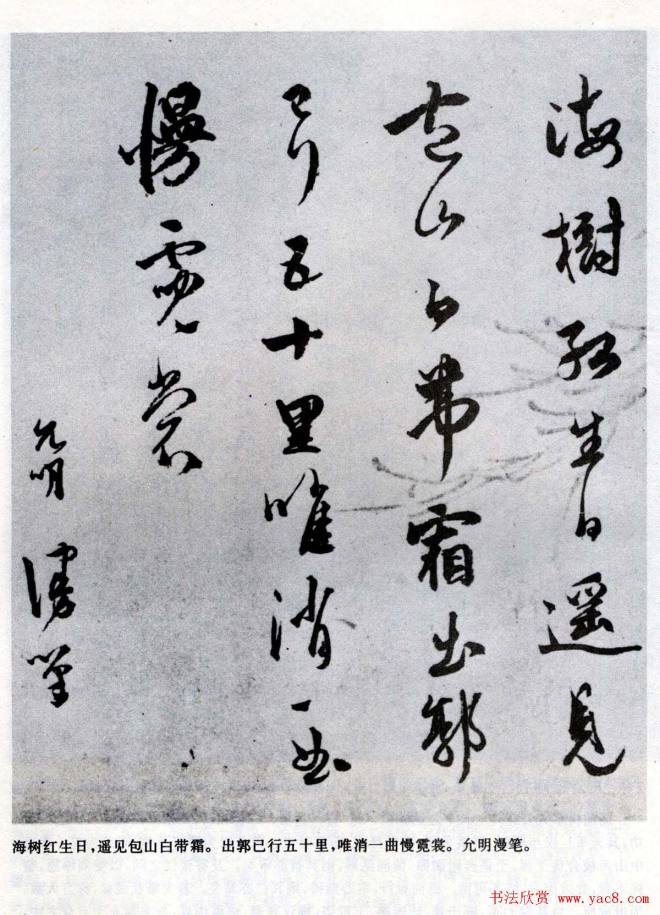 海樹紅生日遥見
包山白帶霜出郭
已行五十里唯消一曲
慢霓裳
允明
漫筆
海树红生日，遥见包山白带霜。出郭已行五十里，唯消一曲慢霓裳。允明漫笔。
书法欣赏 www.yac8.com